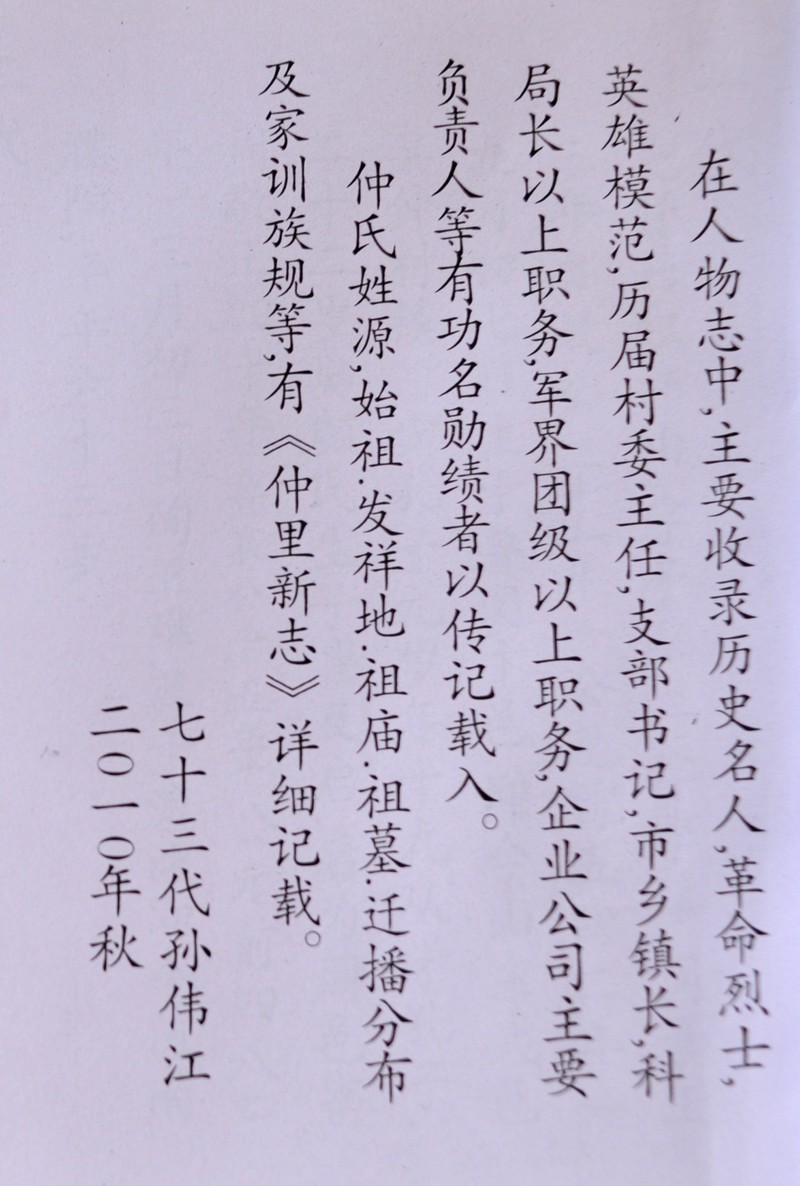 在人物志中,主要收录历史名人,革命烈士,
英雄模范,历届村委主任,支部书记,市乡镇长,科
局长以上职务,军界团级以上职务,企业公司主要
负责人等有功名勋绩者以传记载入。
仲氏姓源,始祖.发祥地.祖庙.祖墓.迁播分布
及家训族规等,有《仲里新志》详细记载。
七十三代孙伟江
二〇一〇年秋